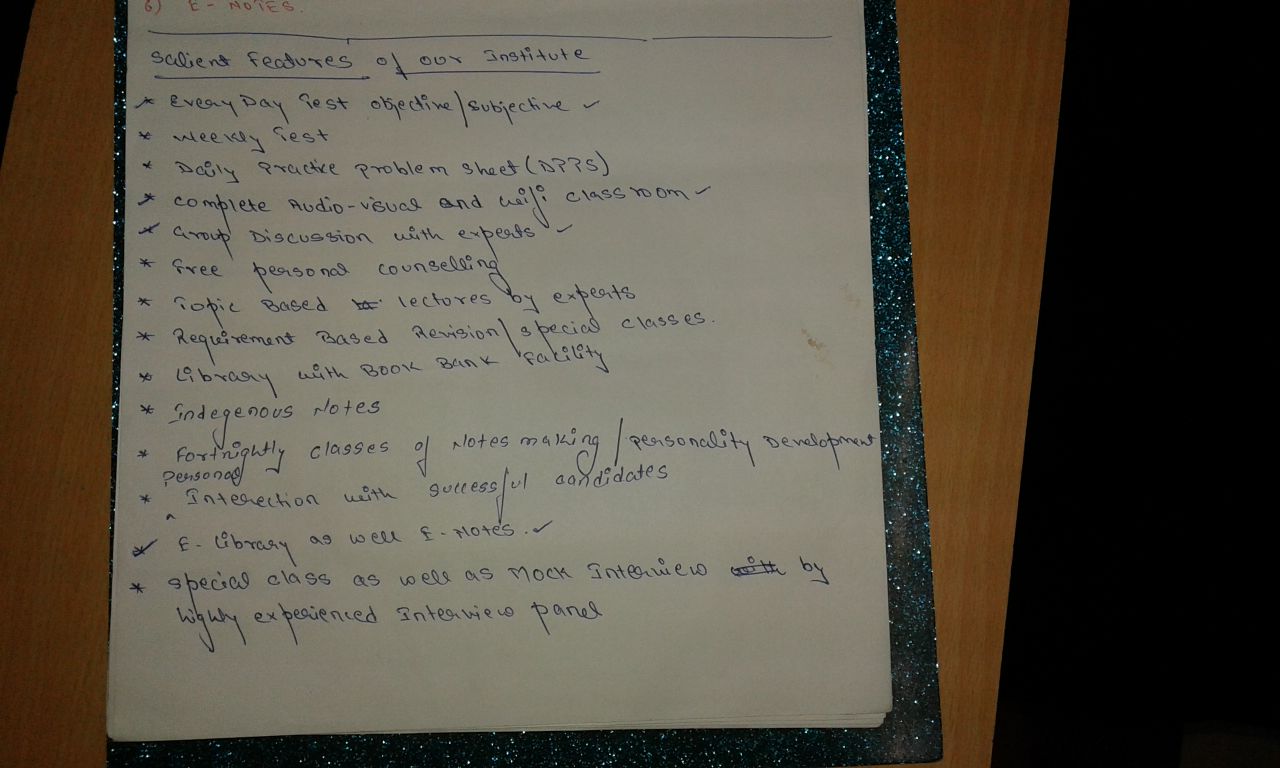 6) E - NOTES.
Salient Features of our Institute
* Every Day Test objective/subjective ✓
* Weekly Test
* Daily Practice Problem Sheet (DPPS)
* Complete Audio-visual and wifi classroom ✓
* Group Discussion with experts ✓
* Free personal counselling
* Topic Based lectures by experts
* Requirement Based Revision/special classes.
* Library with Book Bank Facility
* Indegenous Notes
* Fortnightly classes of Notes making/personality Development
* Personal Interection with successful candidates
* E-Library as well E-Notes. ✓
* special class as well as Mock Interview with by
highly experienced Interview panel